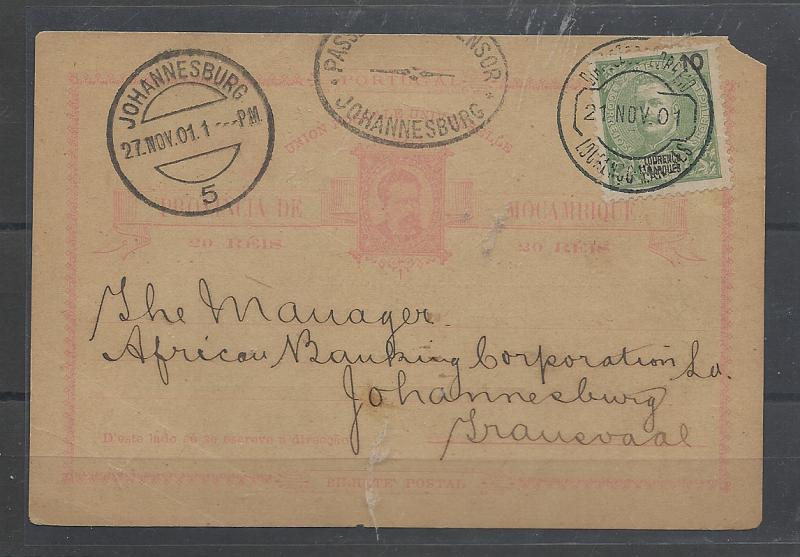 JOHANNESBURG
27.NOV.01.1 - PM.
5
PASS CENSOR
JOHANNESBURG
PORTUGAL
21 NOV. 01
LOURENÇO MARQUES
LOURENÇO
MARQUES
PROVINCIA DE MOÇAMBIQUE
20 RÉIS 20 RÉIS
The Manager
African Banking Corporation Ld.
Johannesburg
Transvaal
D'este lado só se escreve a direcção
BILHETE POSTAL